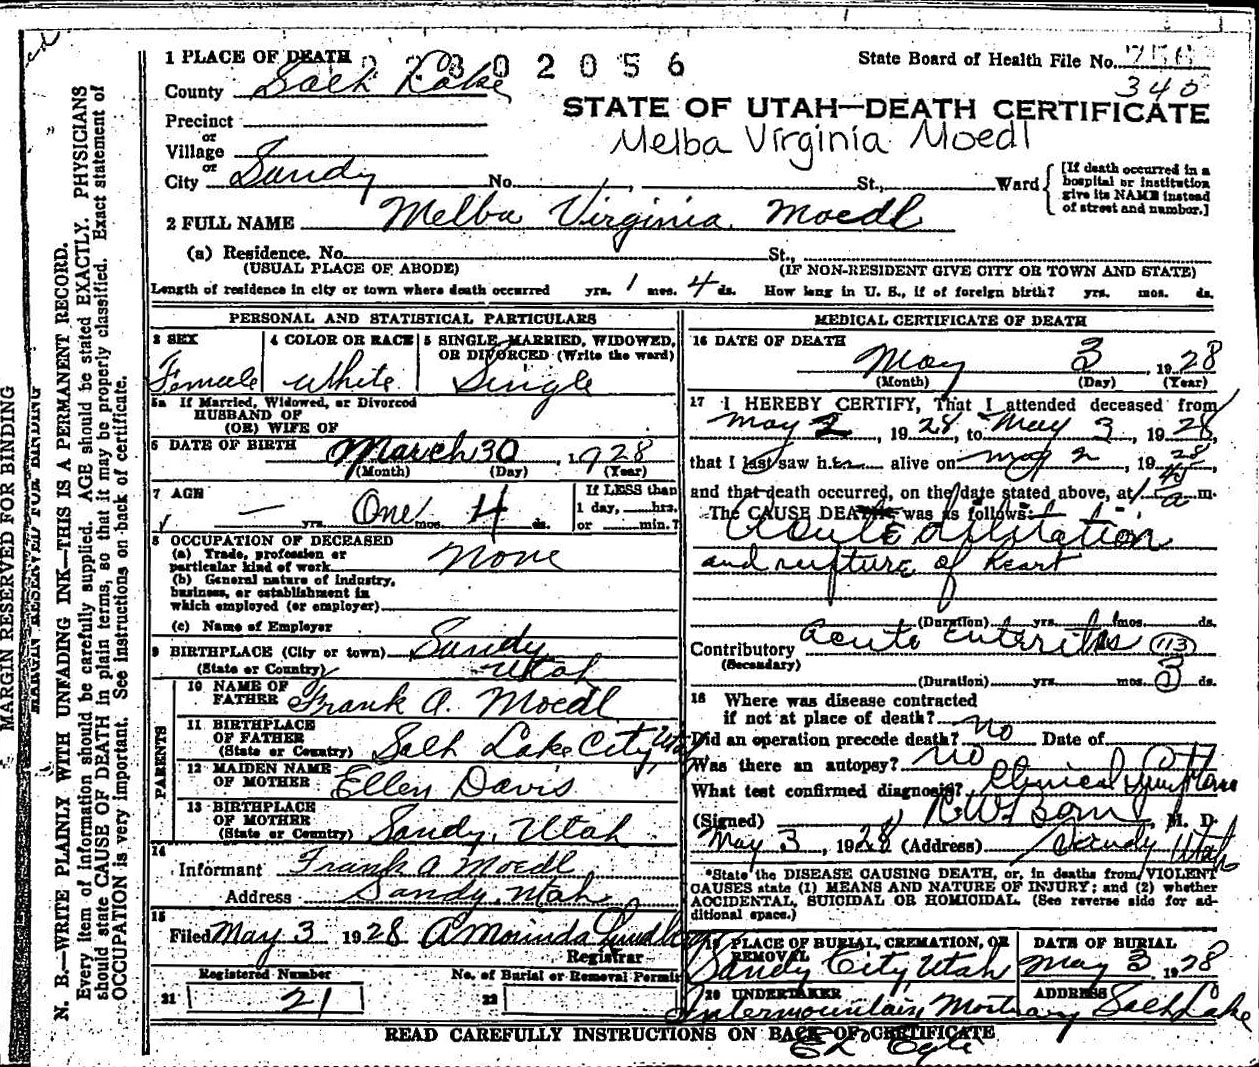 1 PLACE OF DEATH 2 2 3 0 2 0 5 6
State Board of Health File No. 756
340
County Salt Lake
STATE OF UTAH—DEATH CERTIFICATE
Melba Virginia Moedl
Precinct
or
Village
or
City Sandy No. St., Ward
[If death occurred in a hospital or institution give its NAME instead of street and number.]
2 FULL NAME Melba Virginia Moedl
(a) Residence. No. St.,
(USUAL PLACE OF ABODE) (IF NON-RESIDENT GIVE CITY OR TOWN AND STATE)
Length of residence in city or town where death occurred yrs. 1 mos. 4 ds. How long in U. S., if of foreign birth? yrs. mos. ds.
PERSONAL AND STATISTICAL PARTICULARS
3 SEX
Female
4 COLOR OR RACE
White
5 SINGLE, MARRIED, WIDOWED, OR DIVORCED (Write the word)
Single
5a If Married, Widowed, or Divorced
HUSBAND OF
(OR) WIFE OF
6 DATE OF BIRTH March 30 1928
(Month) (Day) (Year)
7 AGE
— yrs. One mos. 4 ds.
If LESS than
1 day, hrs.
or min.?
8 OCCUPATION OF DECEASED
(a) Trade, profession or
particular kind of work None
(b) General nature of industry,
business, or establishment in
which employed (or employer)
(c) Name of Employer
9 BIRTHPLACE (City or town) Sandy
(State or Country) Utah
PARENTS
10 NAME OF
FATHER Frank A. Moedl
11 BIRTHPLACE
OF FATHER
(State or Country) Salt Lake City, Utah
12 MAIDEN NAME
OF MOTHER Ellen Davis
13 BIRTHPLACE
OF MOTHER
(State or Country) Sandy, Utah
14
Informant Frank A Moedl
Address Sandy, Utah
15
Filed May 3 1928
Registrar
Registered Number
21 21
No. of Burial or Removal Permit
22
MEDICAL CERTIFICATE OF DEATH
16 DATE OF DEATH
May 3, 1928
(Month) (Day) (Year)
17 I HEREBY CERTIFY, That I attended deceased from
May 2, 1928, to May 3, 1928,
that I last saw her alive on May 2, 1928,
and that death occurred, on the date stated above, at 1 45 a m.
The CAUSE DEATH was as follows:
Acute dilatation
and rupture of heart
(Duration) yrs. mos. ds.
Contributory Acute Enteritis (113)
(Secondary)
(Duration) yrs. mos. 3 ds.
18 Where was disease contracted
if not at place of death? no
Did an operation precede death? no Date of
Was there an autopsy? no
What test confirmed diagnosis? Clinical Symptoms
(Signed) M. D.
May 3, 1928 (Address) Sandy Utah
*State the DISEASE CAUSING DEATH, or, in deaths from VIOLENT
CAUSES state (1) MEANS AND NATURE OF INJURY; and (2) whether
ACCIDENTAL, SUICIDAL OR HOMICIDAL. (See reverse side for ad-
ditional space.)
19 PLACE OF BURIAL, CREMATION, OR
REMOVAL
Sandy City, Utah
DATE OF BURIAL
May 3 1928
20 UNDERTAKER
Intermountain Mortuary
ADDRESS Salt Lake
READ CAREFULLY INSTRUCTIONS ON BACK OF CERTIFICATE
MARGIN RESERVED FOR BINDING
MARGIN RESERVED FOR BINDING
N. B.—WRITE PLAINLY WITH UNFADING INK—THIS IS A PERMANENT RECORD.
Every item of information should be carefully supplied. AGE should be stated EXACTLY. PHYSICIANS
should state CAUSE OF DEATH in plain terms, so that it may be properly classified. Exact statement of
OCCUPATION is very important. See instructions on back of certificate.